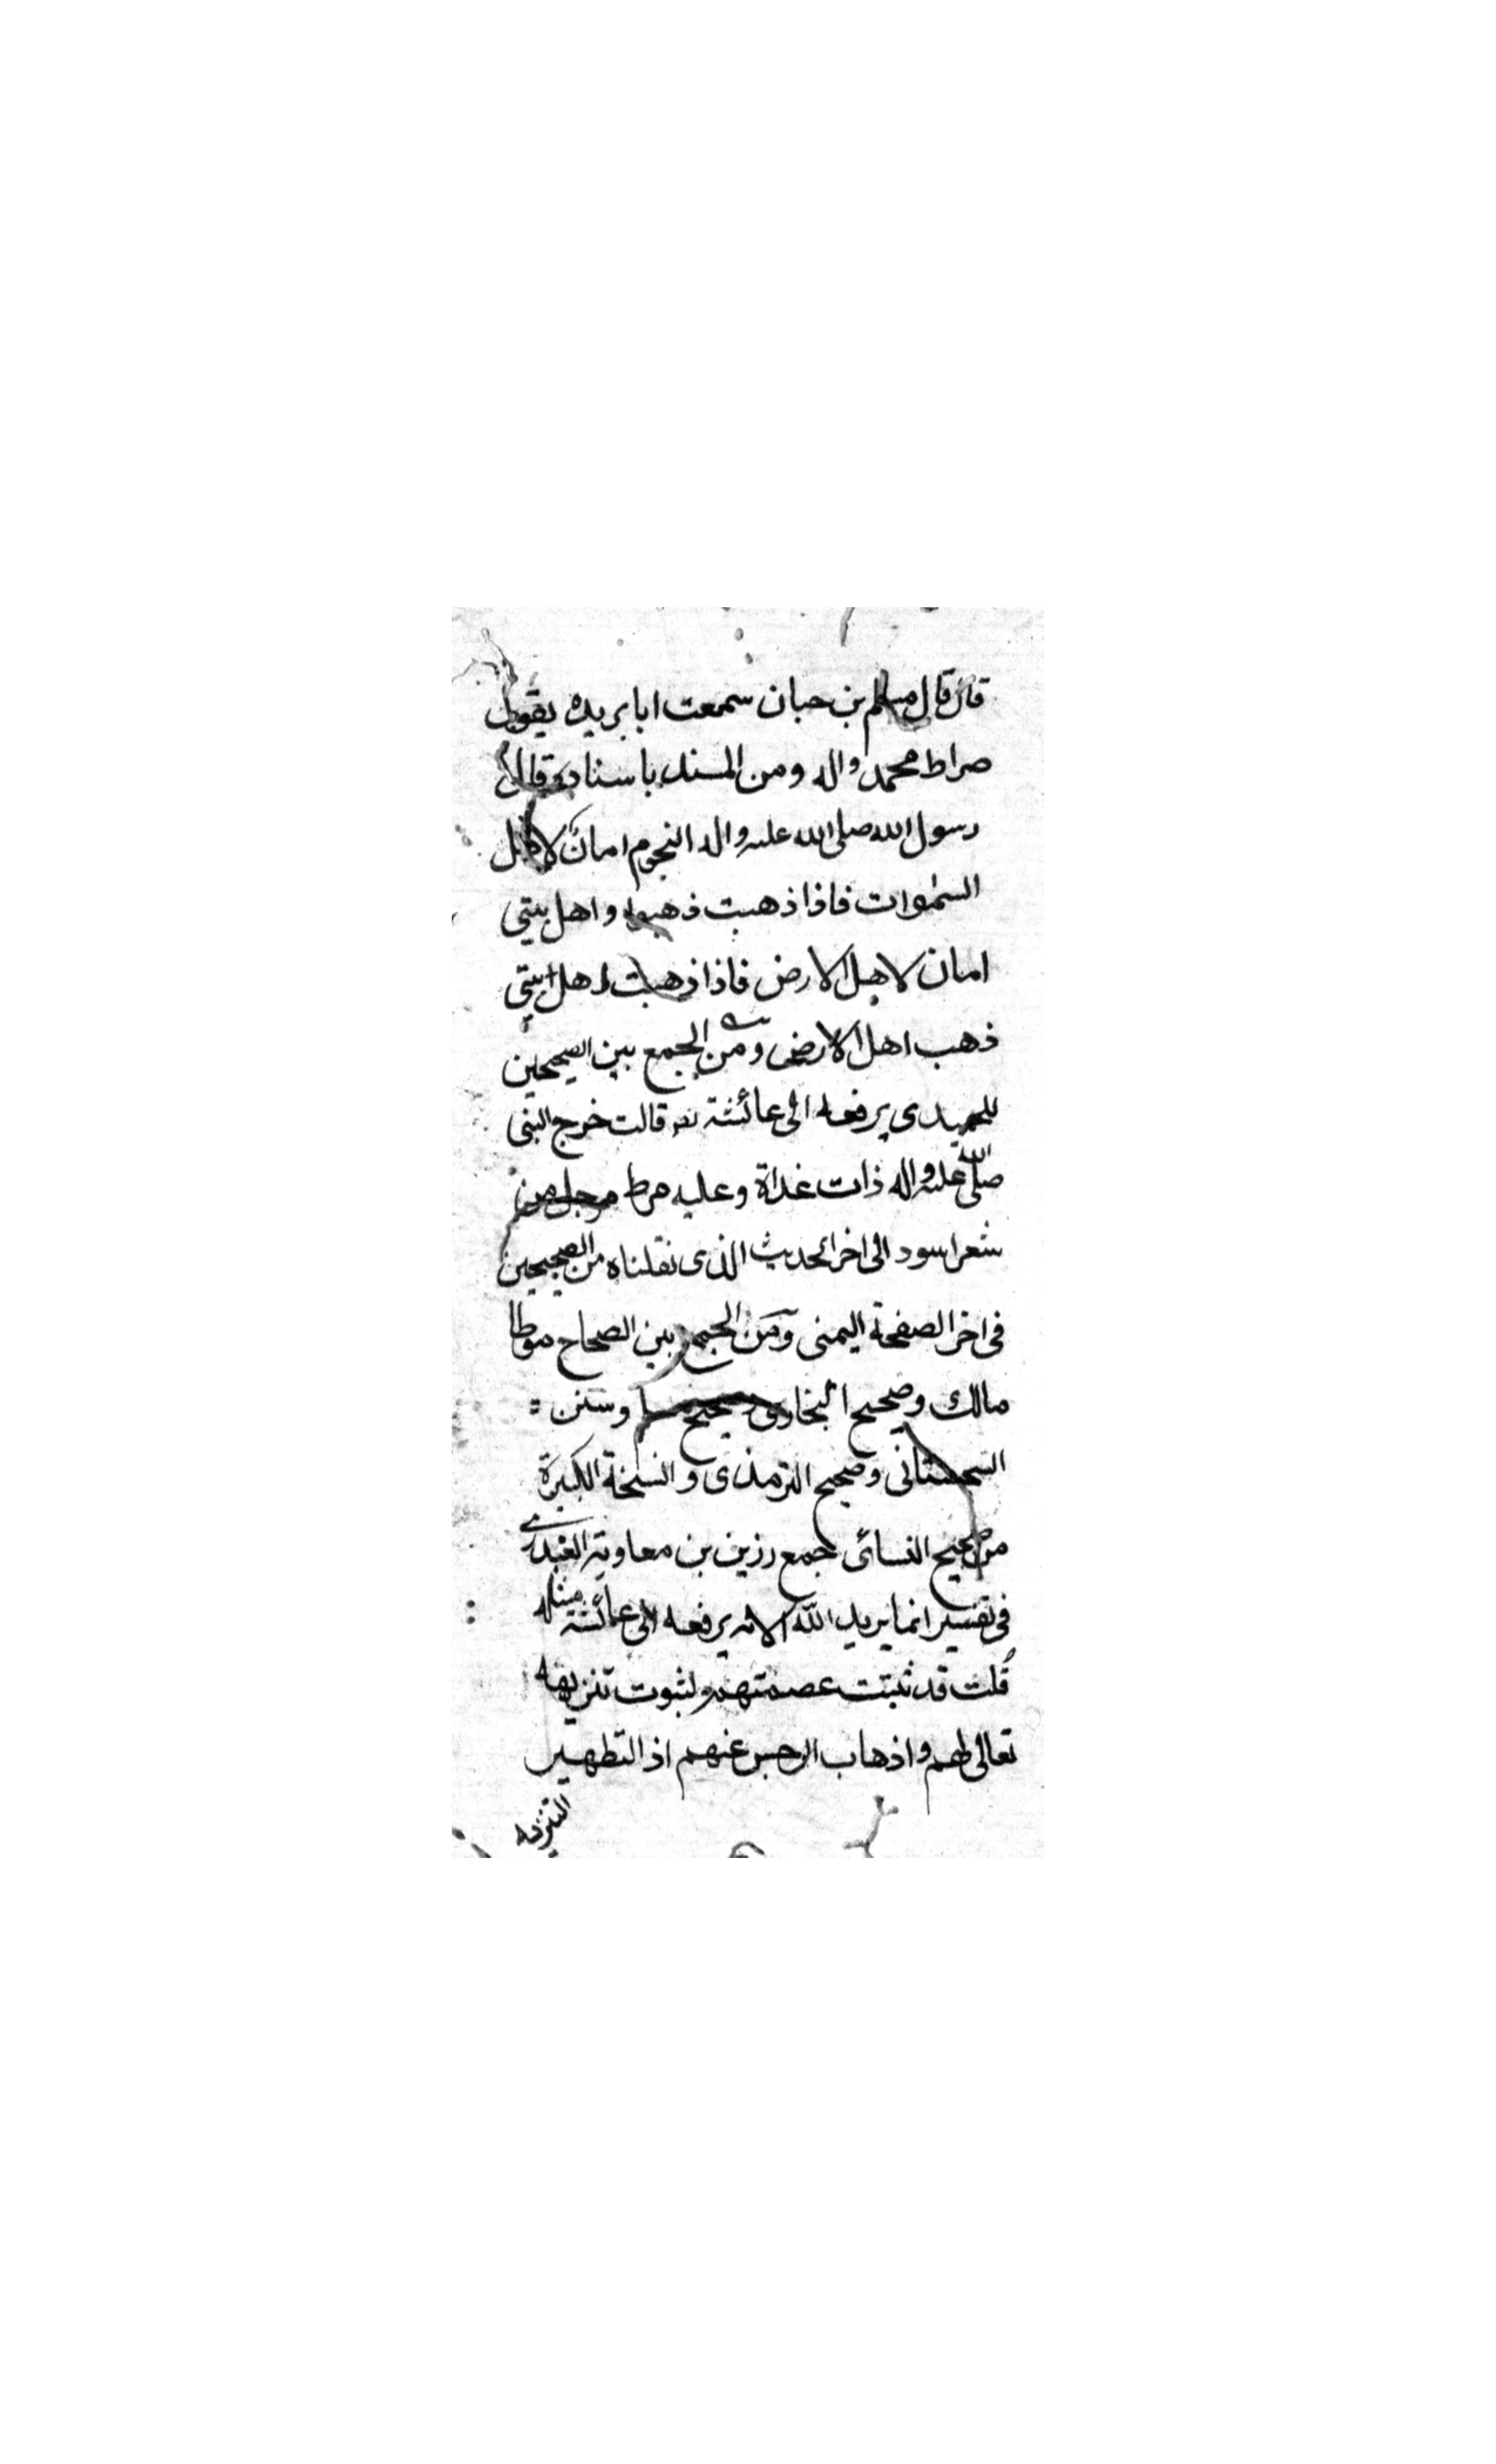 قال قال مسلم بن حبان سمعت ابا بريده يقول
صراط محمد واله ومن المسند باسناده قال
رسول الله صلى الله عليه واله النجوم امان لاهل
السموات فاذا ذهبت ذهبوا واهل بيتي
امان لاهل الارض فاذا ذهبت اهل بيتي
ذهب اهل الارض ومن الجمع بين الصحيحين
للحميدى يرفعه الى عائشة قالت خرج النبى
صلى الله عليه واله ذات غداة وعليه مرط مرجل من
شعر اسود الى اخر الحديث الذى نقلناه من الصحيحين
فى اخر الصفحة اليمنى ومن الجمع بين الصحاح موطا
مالك وصحيح البخارى وصحيح مسلم وسنن :
السجستانى وصحيح الترمذى والنسخة الكبيرة
من صحيح النسائى جمع رزين بن معاوية العبدرى
فى تفسير انما يريد الله الاية يرفعه الى عائشة مثله
قلت قد ثبتت عصمتهم لثبوت تنزيهه
تعالى لهم واذهاب الرجس عنهم اذ التطهير
التنزيه